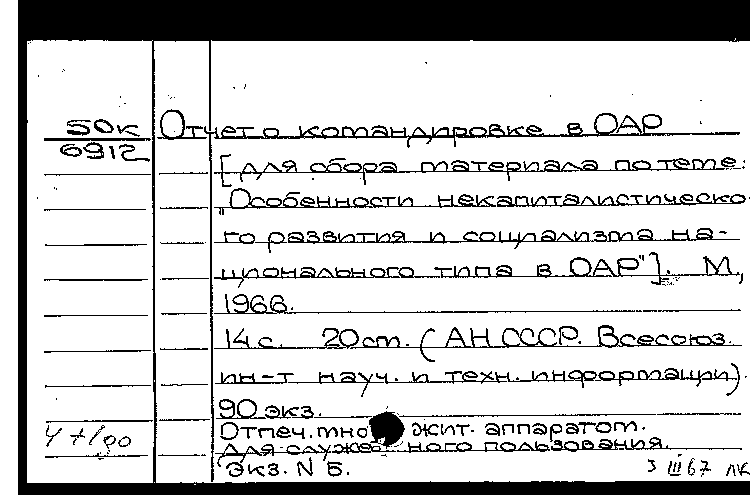 50к Отчет о командировке в ОАР
6912
[для сбора материала по теме:
"Особенности некапиталистическо-
го развития и социализма на-
ционального типа в ОАР"]. М.,
1966.
14 с. 20 см. (АН СССР. Всесоюз.
ин-т науч. и техн. информации).
90 экз.
Отпеч. мно жит. аппаратом.
Для служеб ного пользования.
Экз. N Б.
3 III 67 ЛК